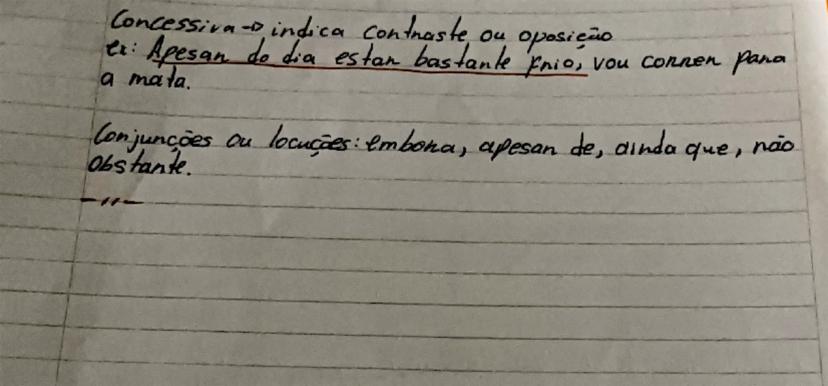 Concessiva → indica contraste ou oposição
ex: Apesar do dia estar bastante frio, vou correr para
a mata.
Conjunções ou locuções: embora, apesar de, ainda que, não
obstante.
-//-